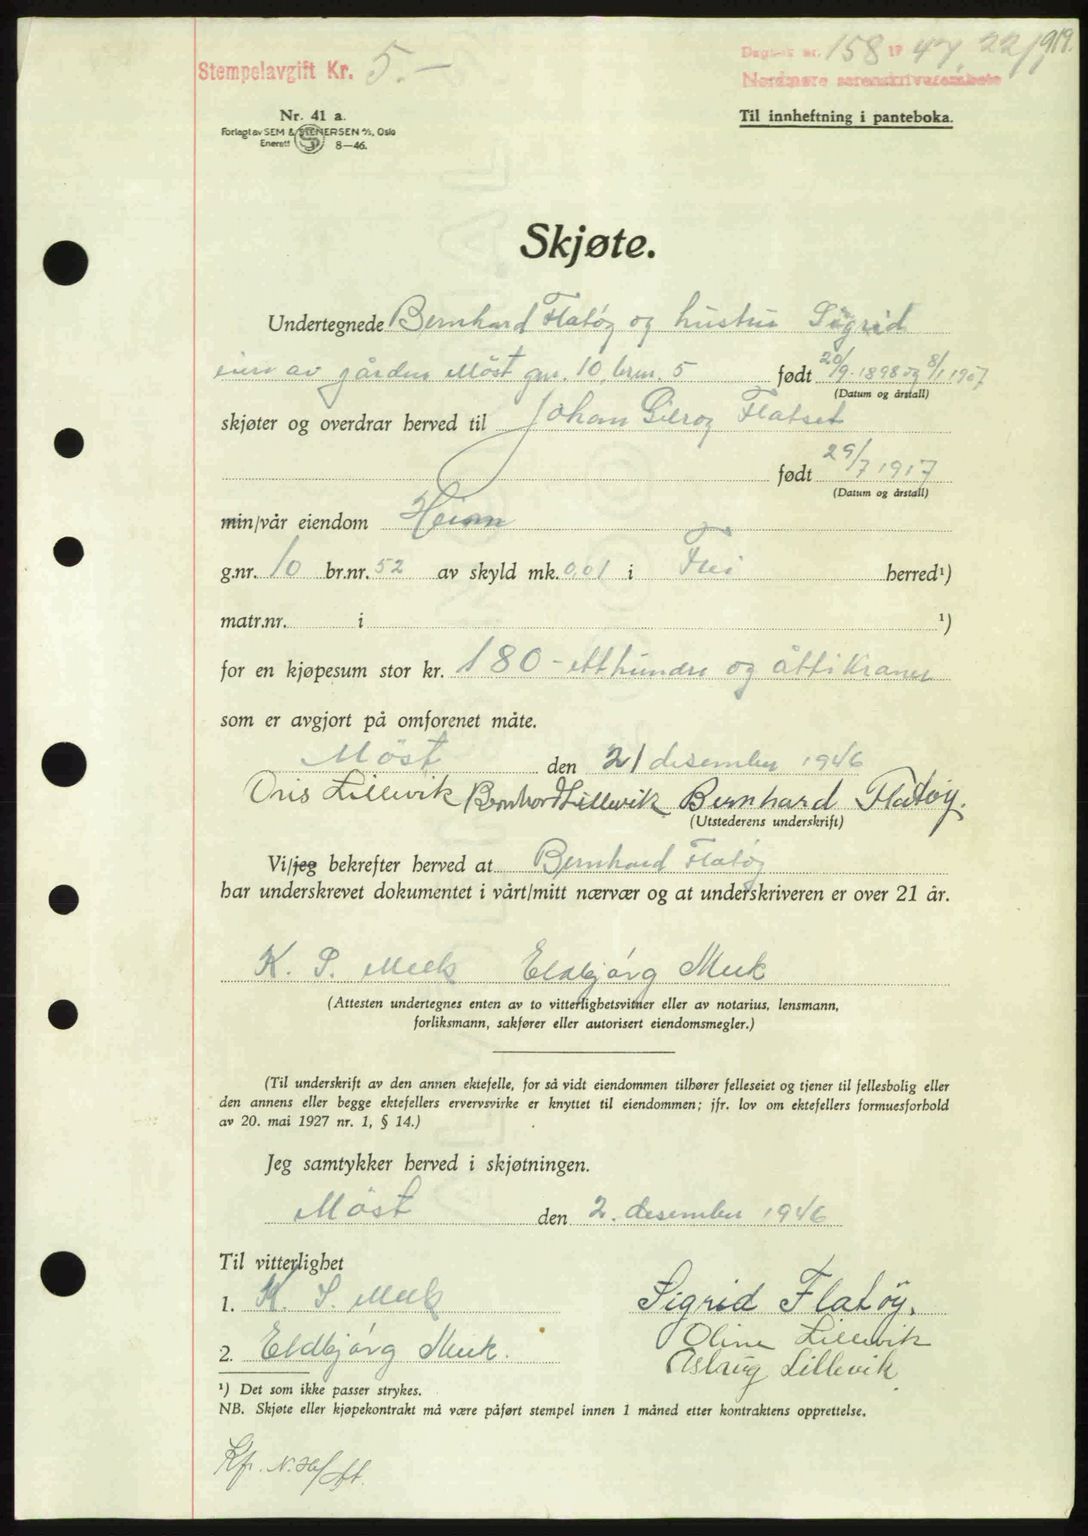 Stempelavgift Kr. 5.—
Dagbok nr. 158 19 47, 22/1
919.
Nordmøre sorenskriverembete
Nr. 41 a.
Forlagt av SEM & STENERSEN A/S, Oslo
Enerett 8—46.
Til innheftning i panteboka.
Skjøte.
Undertegnede Bernhard Flatöy og hustru Sigrid
eiere av gården Möst gnr. 10, brnr. 5 født 20/9-1898 og 8/1 1907
(Datum og årstall)
skjøter og overdrar herved til Johan Flatset
født 29/7 1917
(Datum og årstall)
min/vår eiendom Heim
g.nr. 10 br.nr. 52 av skyld mk. 0,01 i Frei herred¹)
matr.nr. i ¹)
for en kjøpesum stor kr. 180 - etthundre og åtti kroner
som er avgjort på omforenet måte.
Möst den 21 desember 1946
Lillevik Bernhard Lillevik Bernhard Flatöy.
(Utstederens underskrift)
Vi/jeg bekrefter herved at Bernhard Flatöy
har underskrevet dokumentet i vårt/mitt nærvær og at underskriveren er over 21 år.
K. S. Meek Eldbjörg Meek
(Attesten undertegnes enten av to vitterlighetsvitner eller av notarius, lensmann,
forliksmann, sakfører eller autorisert eiendomsmegler.)
(Til underskrift av den annen ektefelle, for så vidt eiendommen tilhører felleseiet og tjener til fellesbolig eller
den annens eller begge ektefellers ervervsvirke er knyttet til eiendommen; jfr. lov om ektefellers formuesforhold
av 20. mai 1927 nr. 1, § 14.)
Jeg samtykker herved i skjøtningen.
Möst den 2. desember 1946
Til vitterlighet
1. K. S. Meek Sigrid Flatöy.
Oline Lillevik
2. Eldbjörg Meek.
Astrug Lillevik
¹) Det som ikke passer strykes.
NB. Skjøte eller kjøpekontrakt må være påført stempel innen 1 måned etter kontraktens opprettelse.